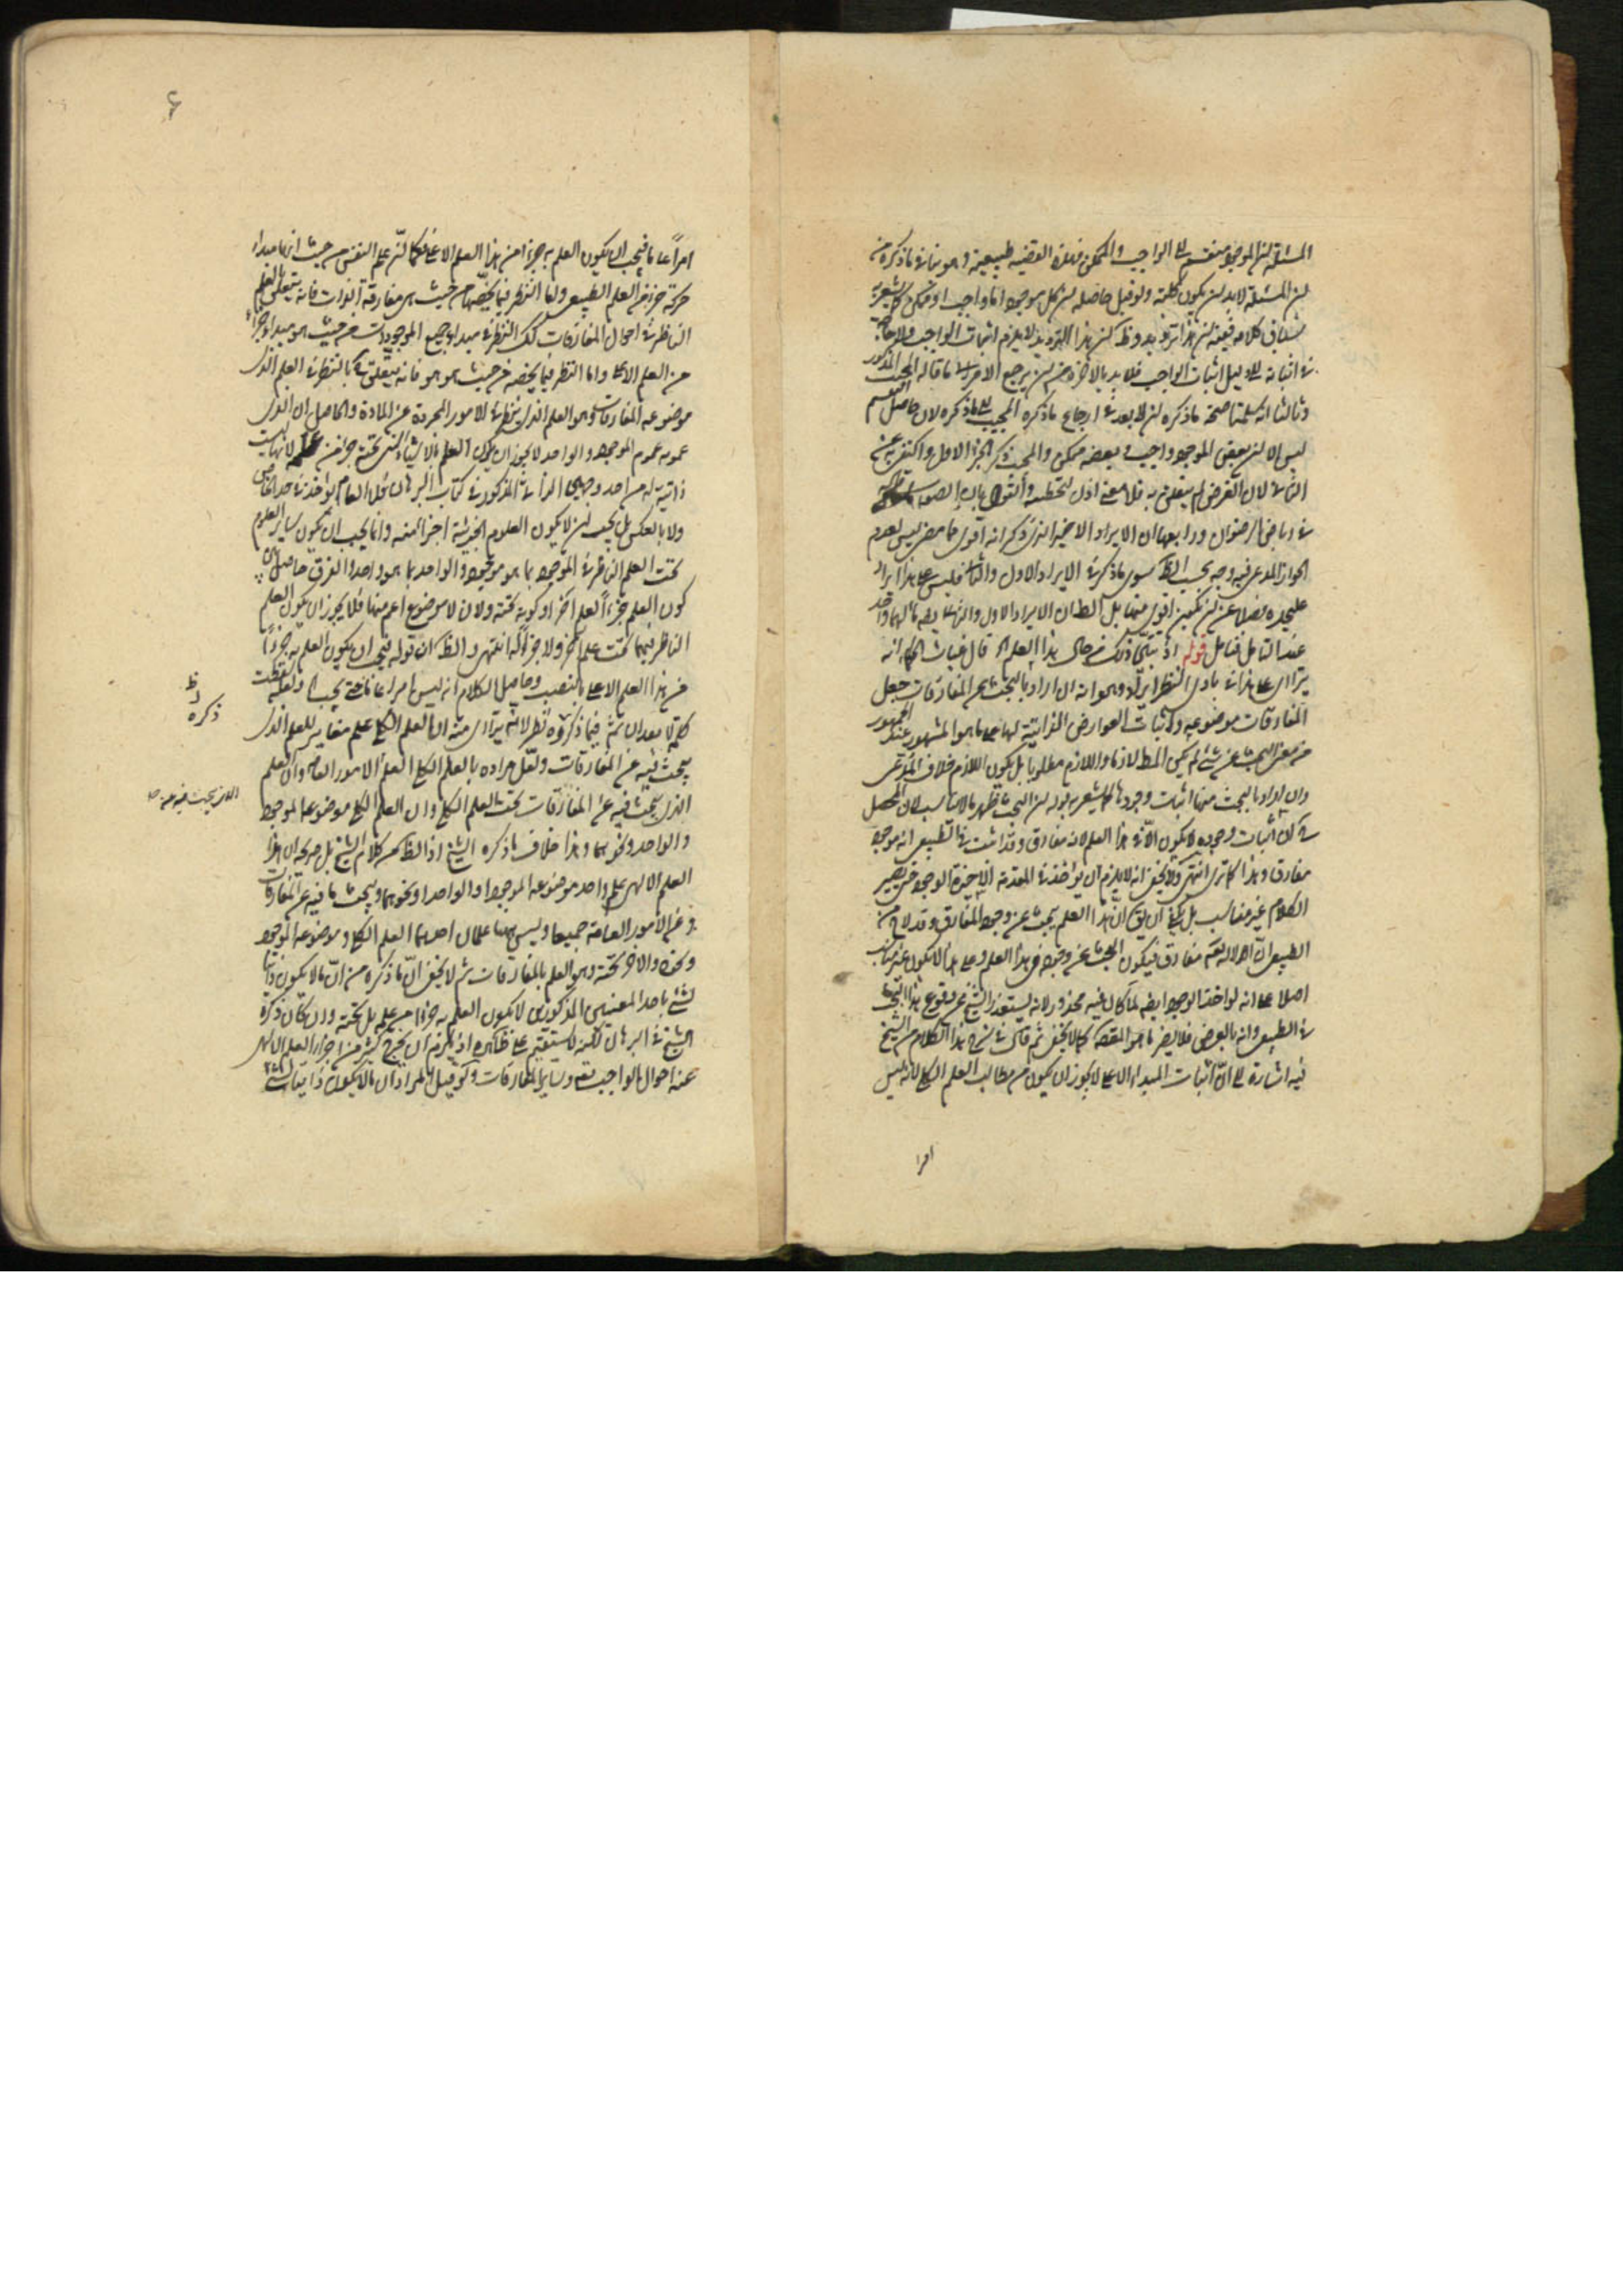 المسئلة ان الموجود منقسم الى الواجب والممكن وهذه القضيه طبيعية وهو ينافى ما ذكره من
ان المسئلة لابد ان يكون كلية ولو قيل حاصله ان كل موجود اما واجب او ممكن كما يشعر به
كلامه ان هذا ترديد وظ ان هذا الترديد لا يلزم اثبات الواجب ولا حاجة
فى اثباته الى دليل اثبات الواجب فلابد بالاخرة من ان يرجع الامر الى ما قاله المجيب المذكور
وثالثا انه صحة ما ذكره ان لا بعد فى ارجاع ما ذكره المجيب الى ما ذكره لان حاصل التقسيم
ليس الا ان بعض الموجود واجب وبعضه ممكن والمجيب ذكر الجزء الاول واكتفى به عن
الثانى لان الغرض لم يتعلق به
ورابعها ان الايراد الاخير الذى ذكر انه اقوى مما مضى ليس لعدم
الجواز المدعى فيه وجه بحسب الظ سوى ما ذكر فى الايراد الاول والثانى فليس هذا ايراد
عليحده فضلا عن ان يكون اقوى منهما بل الظ ان الايراد الاول والثانى ايضا مالهما واحد
عند التامل فتامل قوله اذ تبين ذلك من حال هذا العلم قال غياث الحكماء انه
يتراأى على هذا فى بادى النظر ايراد وهو انه ان اراد بالبحث عن المفارقات جعل
المفارقات موضوعه واثبات العوارض الذاتية لها على ما هو المشهور عند الجمهور
من معنى البحث عن شئ لم يكن المط لازما واللازم مطلوبا بل يكون اللازم خلاف المدعى
وان اراد بالبحث عنها اثبات وجودها كما يشعر به قوله ان البحث
اثبات وجوده لا يكون الا فى هذا العلم لانه مفارق وقد اثبت فى الطبيعى انه موجود
مفارق وهذا كما ترى انتهى ولا يخفى انه لا يلزم ان يؤخذ فى المقدمة الاخيرة الوجود حتى يصير
الكلام غير مناسب بل يكفى ان يق ان هذا العلم يبحث عن وجود المفارق وقد لاح من
الطبيعى ان الاله تعه مفارق فيكون البحث عن وجوده فى هذا العلم وعلى هذا لا يكون غير مناسب
اصلا على انه لو اخذ الوجود ايضا لما كان فيه محذور لانه يستعذر الشيخ عن وقوع هذا البحث
فى الطبيعى وانه بالعرض فلا يضر ما هو المقصد كما لا يخفى ثم قال فى شرح هذا الكلام من الشيخ
فيه اشارة الى ان اثبات المبداء الاعلى لا يجوز ان يكون من مطالب العلم الكلى لانه ليس
امرا
امرا عاما فيجب ان يكون العلم به جزءا من هذا العلم الاعلى فكما ان علم النفس من حيث انها مبداء
حركة جزء من العلم الطبيعى واما النظر فيما يخصها من حيث هى مفارقة الذات فانه يتعلق بالعلم
الناظر فى احوال المفارقات كك النظر فى مبداء جميع الموجودات من حيث هو مبداء جزء
من العلم الاعلى واما النظر فيما يخصه من حيث هو هو فانه يتعلق بالنظر فى العلم الذى
موضوعه المفارقات وهو العلم الذى ينظر فى الامور المجردة عن المادة والحاصل ان الذى
عمومه عموم الموجود والواحد لا يجوز ان يكون العلم بالاشياء التى تحته جزءا من علمه لانها ليست
ذاتية له من احد وجهى الذاتى المذكور فى كتاب البرهان فلا العام يؤخذ فى حد الخاص
ولا بالعكس بل يجب ان لا يكون العلوم الجزئية اجزاء منه وانما يجب ان يكون ساير العلوم
تحت العلم الناظر فى الموجود بما هو موجود والواحد بما هو واحد والفرق حاصل بين
كون العلم جزءا لعلم اخر او كونه تحته ولان لا موضوع اعم منهما فلا يجوز ان يكون العلم
الناظر فيهما تحت علم اخر ولا جزءا له انتهى والظ ان قوله فيجب ان يكون العلم به جزءا
من هذا العلم الاعلى بالنصب وحاصل الكلام انه ليس امرا عاما حتى يجب ولعله سقطت
كلمة لا بعد ان ثم فيما ذكروه نظر لانه يتراأى منه ان العلم الكلى علم مغاير للعلم الذى
يبحث فيه عن المفارقات ولعل مراده بالعلم الكلى العلم الامور العامة وان العلم
الذى يبحث فيه عن المفارقات تحت العلم الكلى وان العلم الكلى موضوعه الموجود
والواحد ونحوهما وهذا خلاف ما ذكره الشيخ اذ الظ من كلام الشيخ بل صريحه ان هذا
العلم الالهى علم واحد موضوعه الموجود او الواحد او نحوهما ويبحث ما فيه عن المفارقات
وعن الامور العامة جميعا وليس ههنا علمان احدهما العلم الكلى وموضوعه الموجود
ونحوه والاخر تحته وهو العلم بالمفارقات ثم لا يخفى ان ما ذكره من ان ما لا يكون ذاتيا
لشئ باحد المعنيين المذكورين لا يكون العلم به جزءا من علمه بل تحته وان كان ذكره
الشيخ فى البرهان لكنه لا يستقيم على ظاهره اذ يلزم ان يخرج كثير من اجزاء العلم الالهى
عنه احوال الواجب تعه وساير المفارقات ولو قيل المراد ان ما لا يكون ذاتيا لشئ
ظ
ذكره
الذى يبحث فيه عنه